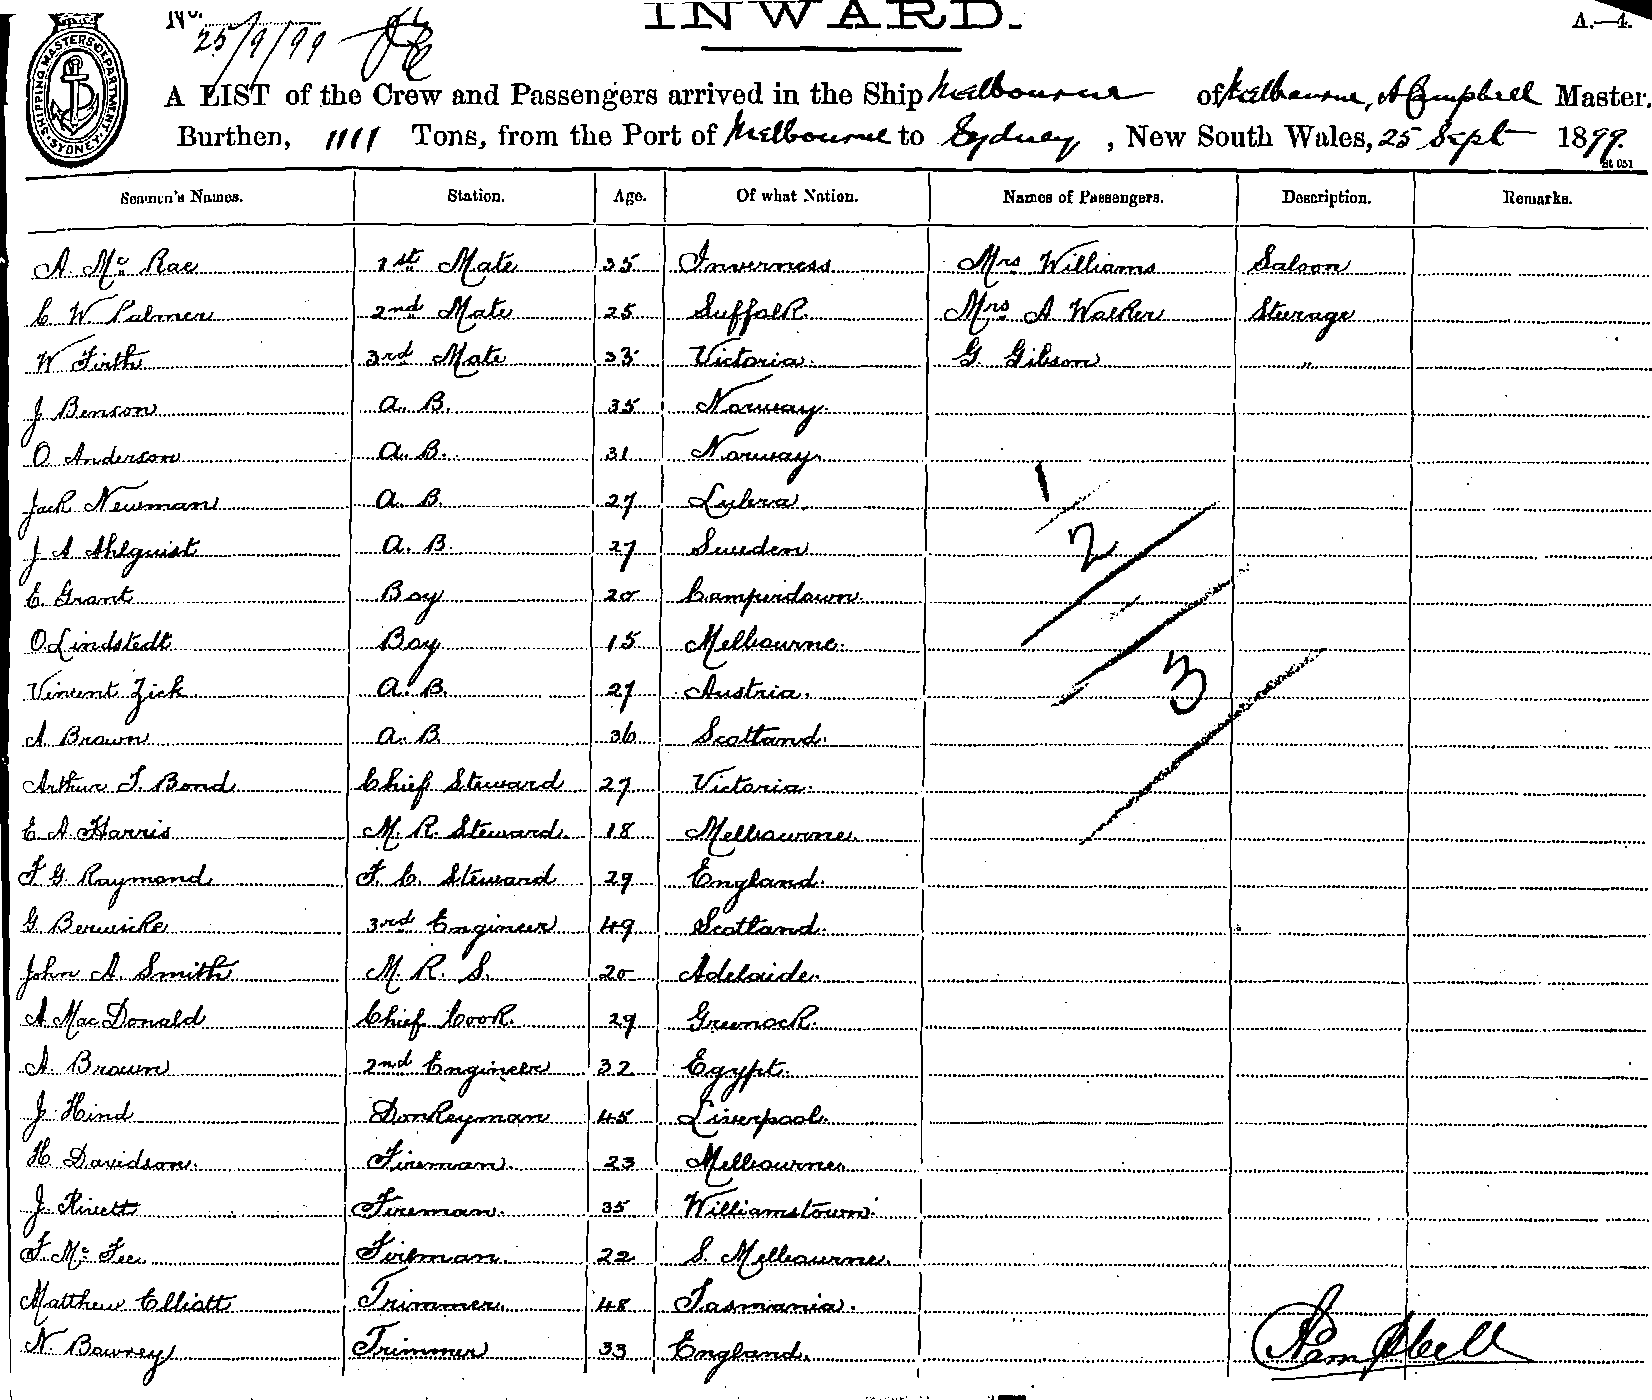 INWARD. A.—4.
No.
25/9/99
SHIPPING MASTERS DEPARTMENT. SYDNEY
A LIST of the Crew and Passengers arrived in the Ship Melbourne of Melbourne, A Campbell Master,
Burthen, 1111 Tons, from the Port of Melbourne to Sydney, New South Wales, 25 Sept 1899.
Seamen's Names. Station. Age. Of what Nation. Names of Passengers. Description. Remarks.
A. Mc Rae 1st Mate 35 Inverness Mrs Williams Saloon
C W Palmer 2nd Mate 25 Suffolk Mrs A Walker Steerage
W Firth 3rd Mate 33 Victoria. G. Gibson "
J Benson A. B. 35 Norway.
O. Anderson A. B. 31 Norway.
Jack Newman A. B. 27
J A Ahlquist A. B. 27 Sweden
E. Grant Boy 20 Camperdown.
O Lindstedt Boy 15 Melbourne.
Vincent Zick A. B. 27 Austria.
A Brown A. B. 36 Scotland.
Arthur T. Bond Chief Steward 27 Victoria.
E A Harris M. R. Steward. 18 Melbourne.
F G Raymond F. C. Steward 29 England.
G Berwicke 3rd Engineer 49 Scotland.
John A. Smith M. R. S. 20 Adelaide.
A MacDonald Chief Cook. 29 Greenock.
A. Brown 2nd Engineer 32 Egypt.
J. Hind Donkeyman 45 Liverpool.
H Davidson. Fireman. 23 Melbourne.
J. Rivett Fireman. 35 Williamstown.
F. Mc Fee Fireman. 22 S. Melbourne.
Matthew Elliott Trimmer. 48 Tasmania.
N. Bowrey Trimmer 33 England.
1
2
3
A Campbell